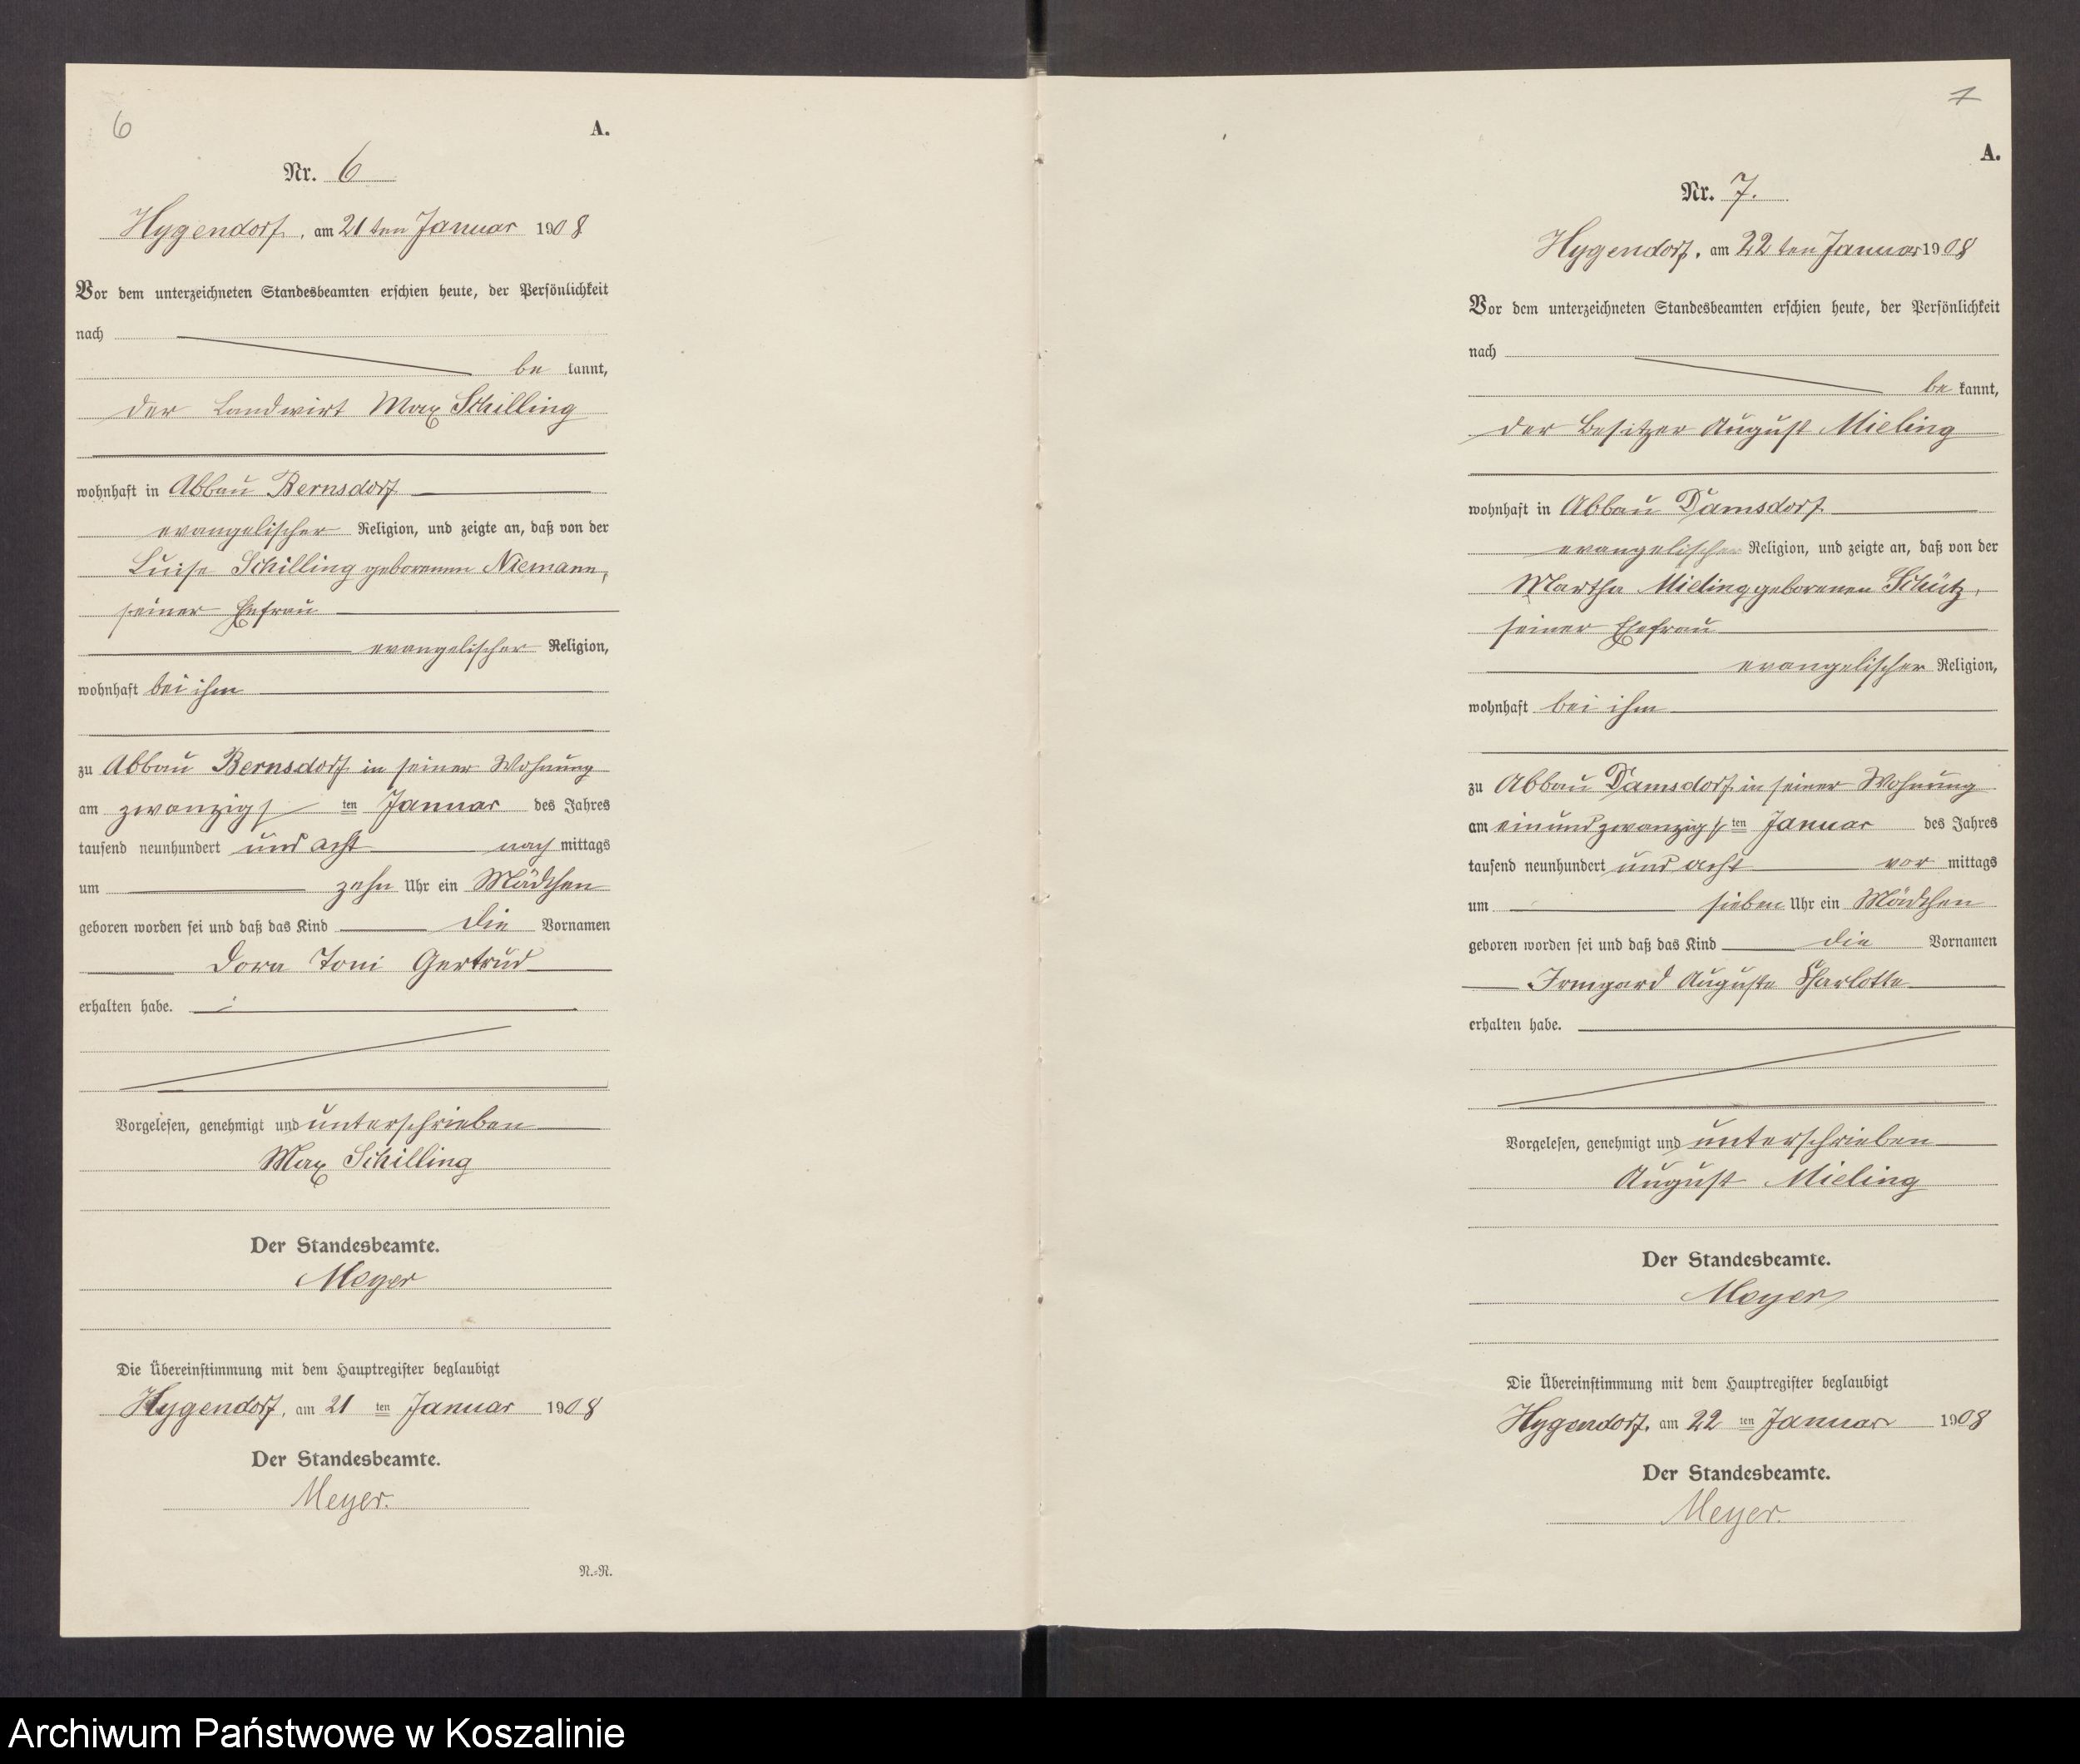 6
A.
Nr. 6
Hygendorf, am 21ten Januar 1908
Vor dem unterzeichneten Standesbeamten erschien heute, der Persönlichkeit
nach
be kannt,
der Landwirt Max Schilling
wohnhaft in Abbau Bernsdorf
evangelischer Religion, und zeigte an, daß von der
Luise Schilling geborenen Niemann,
seiner Ehefrau
evangelischer Religion,
wohnhaft bei ihm
zu Abbau Bernsdorf in seiner Wohnung
am zwanzigsten Januar des Jahres
tausend neunhundert und acht nach mittags
um zehn Uhr ein Mädchen
geboren worden sei und daß das Kind die Vornamen
Dora Toni Gertrud
erhalten habe.
Vorgelesen, genehmigt und unterschrieben
Max Schilling
Der Standesbeamte.
Meyer
Die Übereinstimmung mit dem Hauptregister beglaubigt
Hygendorf, am 21 ten Januar 1908
Der Standesbeamte.
Meyer.
N.=N.
7
A.
Nr. 7.
Hygendorf, am 22ten Januar 1908
Vor dem unterzeichneten Standesbeamten erschien heute, der Persönlichkeit
nach
be kannt,
der Besitzer August Mieling
wohnhaft in Abbau Damsdorf
evangelischer Religion, und zeigte an, daß von der
Martha Mieling geborenen Schütz,
seiner Ehefrau
evangelischer Religion,
wohnhaft bei ihm
zu Abbau Damsdorf in seiner Wohnung
am einundzwanzigsten Januar des Jahres
tausend neunhundert und acht vor mittags
um sieben Uhr ein Mädchen
geboren worden sei und daß das Kind die Vornamen
Irmgard Auguste Charlotte
erhalten habe.
Vorgelesen, genehmigt und unterschrieben
August Mieling
Der Standesbeamte.
Meyer
Die Übereinstimmung mit dem Hauptregister beglaubigt
Hygendorf, am 22 ten Januar 1908
Der Standesbeamte.
Meyer.
Archiwum Państwowe w Koszalinie